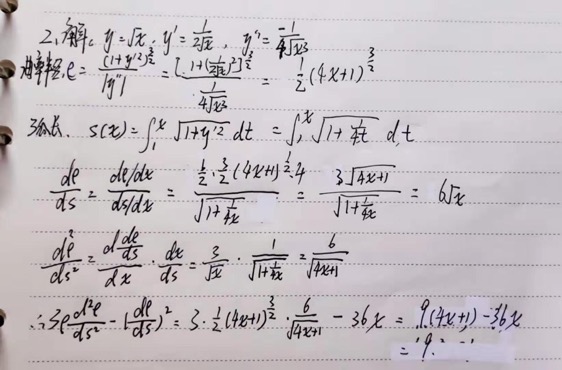 2、解: y=√x, y'=1/(2√x), y''=-1/(4√x³)
曲率半径 ρ=(1+y'²)^(3/2)/|y''|=[1+(1/(2√x))²]^(3/2)/(1/(4√x³))=1/2(4x+1)^(3/2)
弧长. s(x)=∫₁ˣ√(1+y'²)dt=∫₁ˣ√(1+1/(4t))dt
dρ/ds=(dρ/dx)/(ds/dx)=(1/2·3/2(4x+1)^(1/2)·4)/√(1+1/(4x))=3√(4x+1)/√(1+1/(4x))=6√x
d²ρ/ds²=(d dρ/ds)/dx·dx/ds=3/√x·1/√(1+1/(4x))=6/√(4x+1)
∴3ρ d²ρ/ds²-(dρ/ds)²=3·1/2(4x+1)^(3/2)·6/√(4x+1)-36x=9(4x+1)-36x
=9